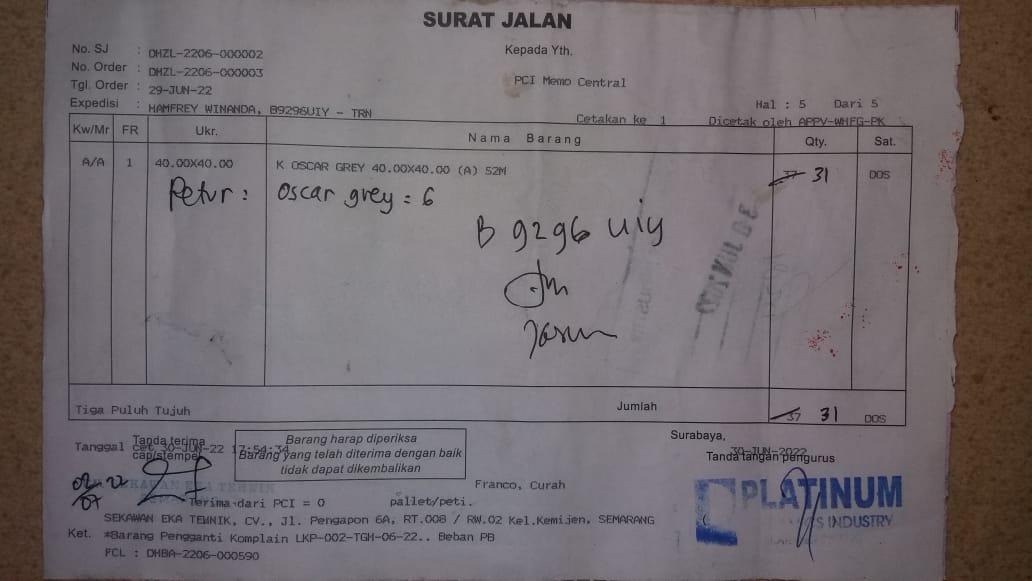 SURAT JALAN
No. SJ : DHZL-2206-000002
No. Order : DHZL-2206-000003
Tgl. Order : 29-JUN-22
Expedisi : HAMFREY WINANDA, B9296UIY - TRN
Kepada Yth.
PCI Memo Central
Hal : 5 Dari 5
Cetakan ke 1 Dicetak oleh APPV-WHFG-PK
Kw/Mr FR Ukr. Nama Barang Qty. Sat.
A/A 1 40.00X40.00 K OSCAR GREY 40.00X40.00 (A) 52M 37 31 DOS
Retur : Oscar grey = 6
B 9296 UIY
Tiga Puluh Tujuh Jumlah 37 31 DOS
Tanggal cet 30-JUN-22 17:54:34
Tanda terima
cap/stempel
Barang harap diperiksa
Barang yang telah diterima dengan baik
tidak dapat dikembalikan
Surabaya,
30-JUN-2022
Tanda tangan pengurus
Franco, Curah
Terima dari PCI = 0 pallet/peti.
PLATINUM
INDUSTRY
SEKAWAN EKA TEHNIK, CV., Jl. Pengapon 6A, RT.008 / RW.02 Kel.Kemijen, SEMARANG
Ket. *Barang Pengganti Komplain LKP-002-TGH-06-22.. Beban PB
FCL : DHBA-2206-000590